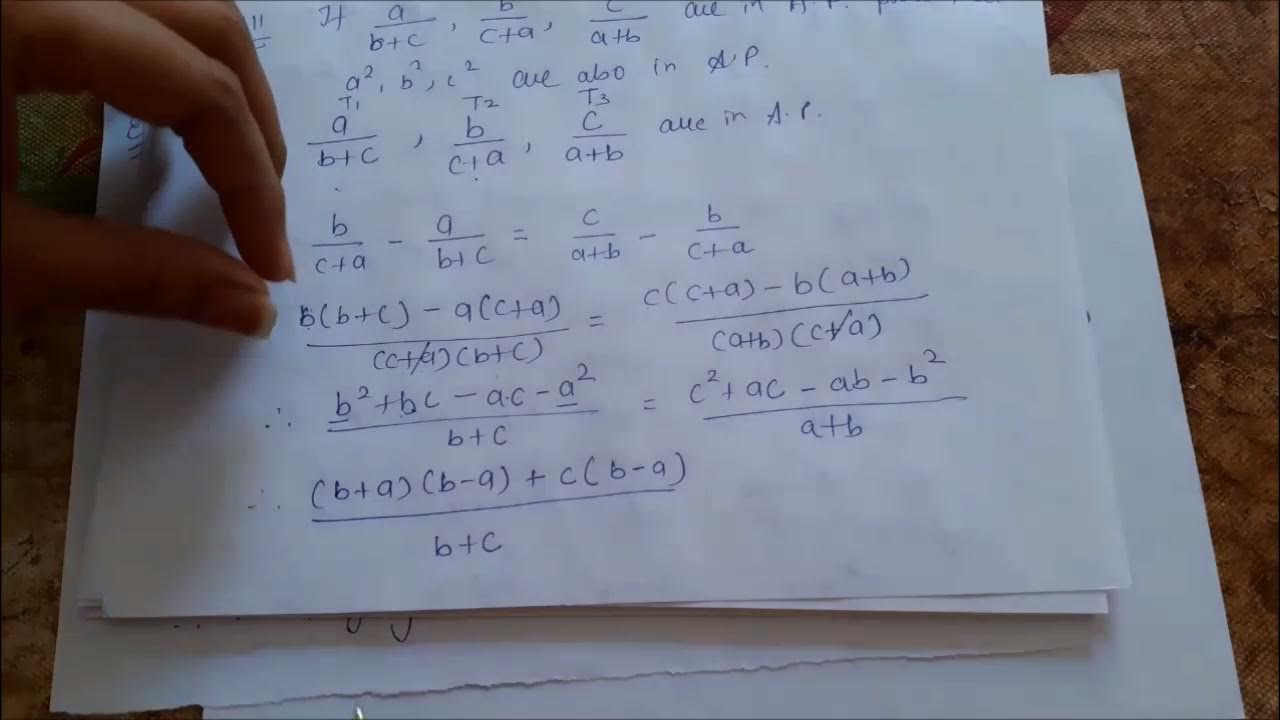 11 If a/(b+c), b/(c+a), c/(a+b) are in A.P.
a², b², c² are also in A.P.
T1 T2 T3
a/(b+c), b/(c+a), c/(a+b) are in A.P.
b/(c+a) - a/(b+c) = c/(a+b) - b/(c+a)
(b(b+c) - a(c+a))/((c+a)(b+c)) = (c(c+a) - b(a+b))/((a+b)(c+a))
∴ (b²+bc - ac - a²)/(b+c) = (c²+ac - ab - b²)/(a+b)
∴ ((b+a)(b-a) + c(b-a))/(b+c)